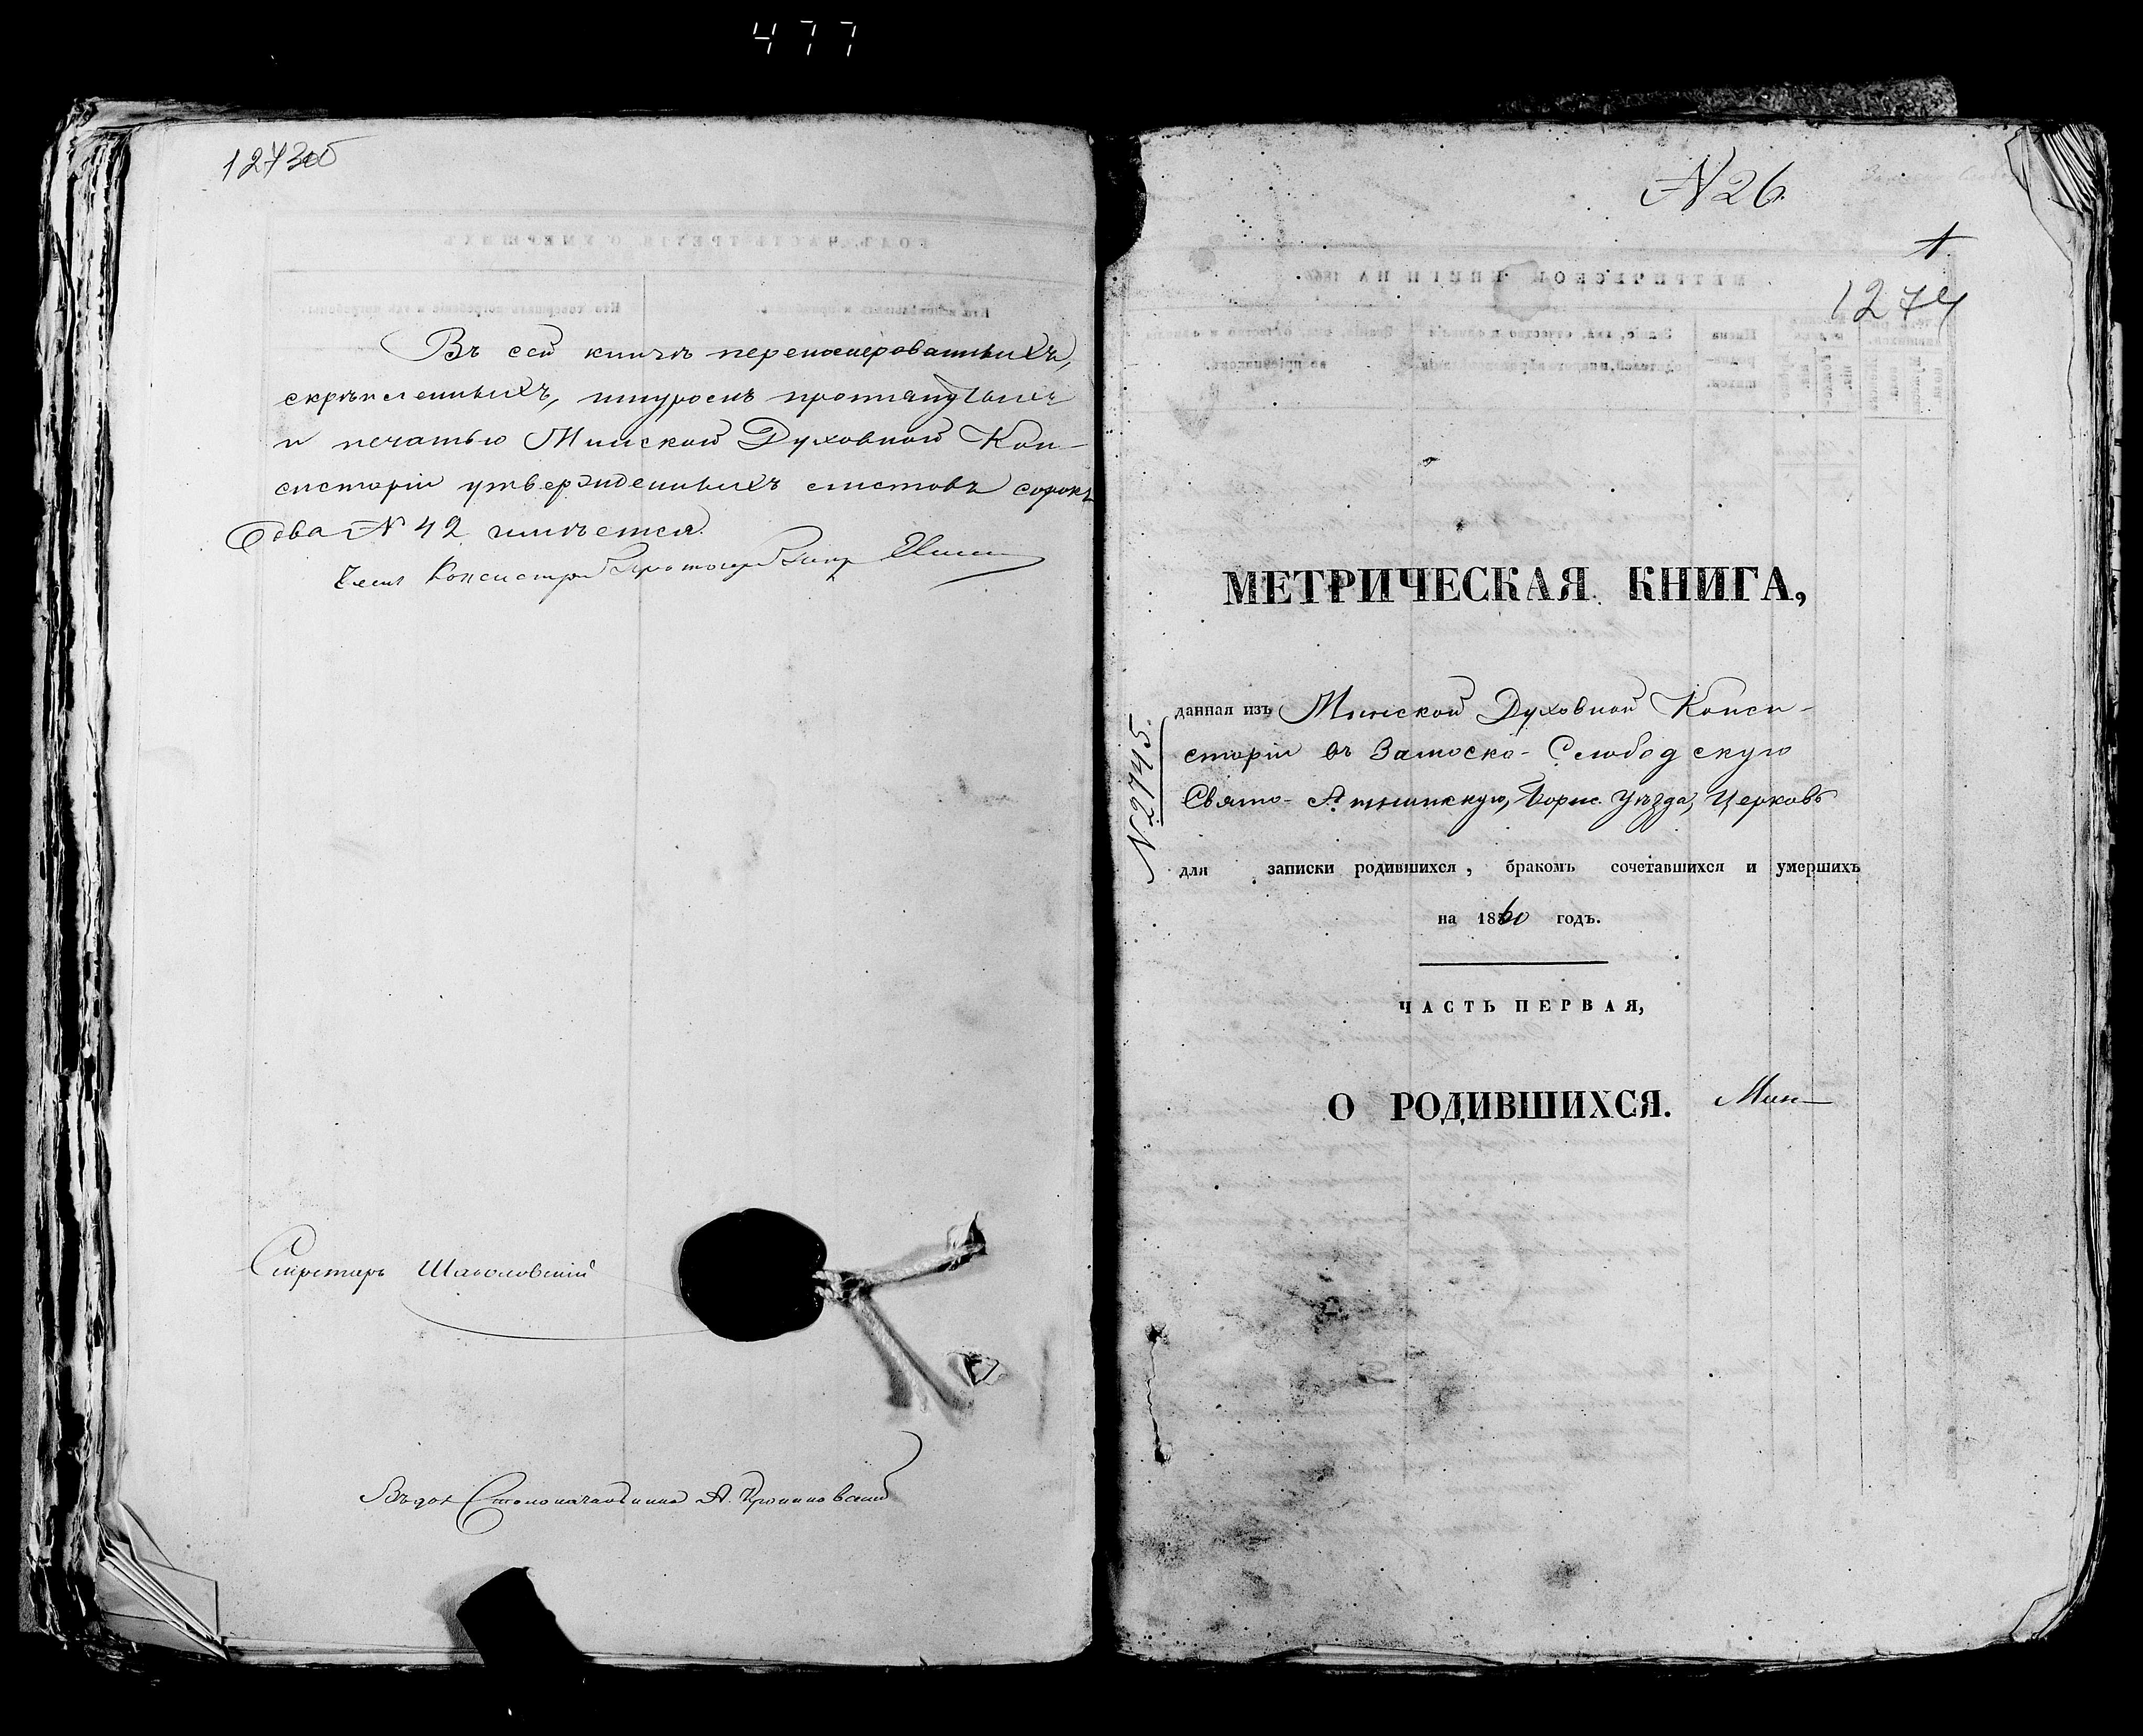 477
1273об
Въ сей книгѣ перенумерованныхъ,
скрѣпленныхъ, шнуромъ протянутыхъ
и печатью Минской Духовной Кон-
систоріи утвержденныхъ листовъ сорокъ
два № 42 имѣется.
Членъ Консисторіи Протоіерей
Секретарь
Столоначальника А.
№ 26
1
1274
МЕТРИЧЕСКАЯ КНИГА,
данная изъ Минской Духовной Конси-
сторіи въ Замоско-Слободскую
Свято- Борис. Уѣзда, Церковь
№ 2745.
для записки родившихся, бракомъ сочетавшихся и умершихъ
на 1860 годъ.
ЧАСТЬ ПЕРВАЯ,
О РОДИВШИХСЯ. Мин-